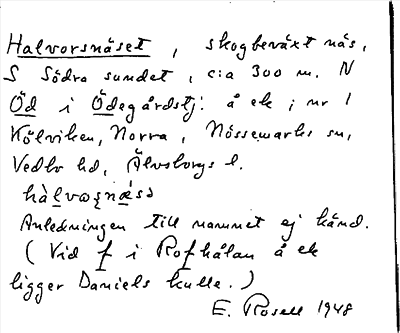 Halvorsnäset, skogbeväxt näs,
S Södra sundet, c:a 300 m. N
Öd i Ödegårdstj. å ek; nr 1
Kölviken, Norra, Nössemarks sn,
Vedbo hd, Älvsborgs l.
Anledningen till namnet ej känd.
(Vid f i Rofhålan å ek
ligger Daniels kulle.)
E. Rosell 1948